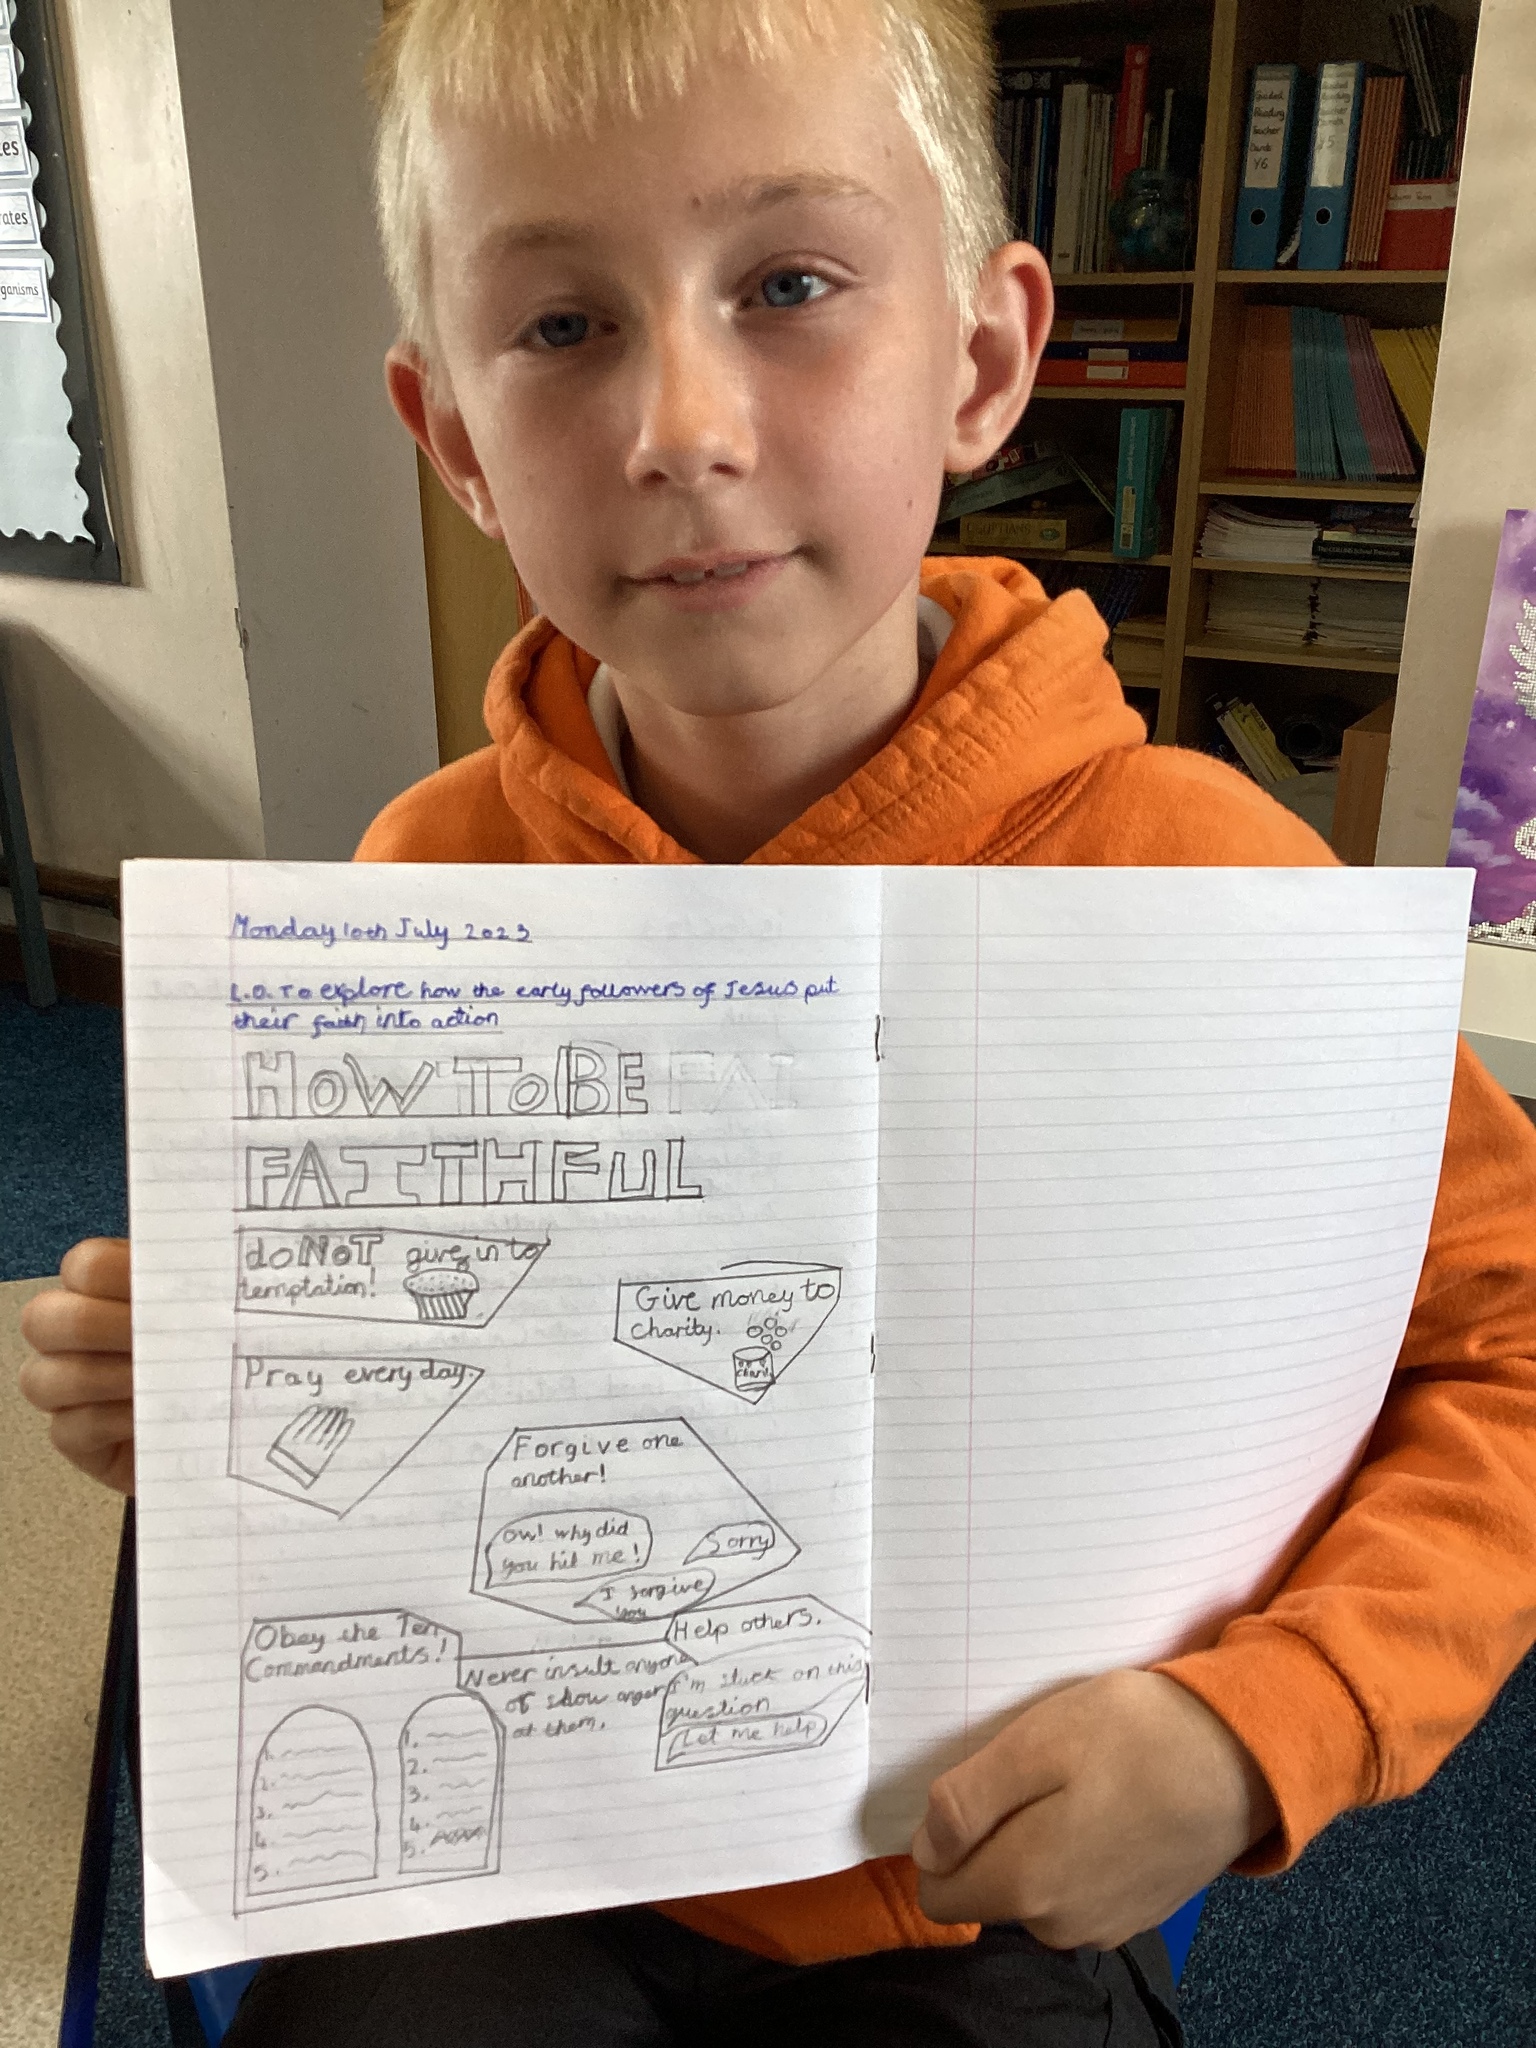 Monday 10th July 2023
L.O. To explore how the early followers of Jesus put
their faith into action
HOW TO BE FAI
FAITHFUL
do NOT give in to
temptation!
Give money to
charity.
Pray every day.
Forgive one
another!
Ow! why did
you hit me!
Sorry
I forgive
you
Obey the Ten
Commandments!
1.
2.
3.
4.
5.
1.
2.
3.
4.
5.
Never insult anyone
of show anger
at them.
Help others.
I'm stuck on this
question
Let me help
Guided
Reading
Teacher
Cards
Y6
EGYPTIANS
ates
ganisms